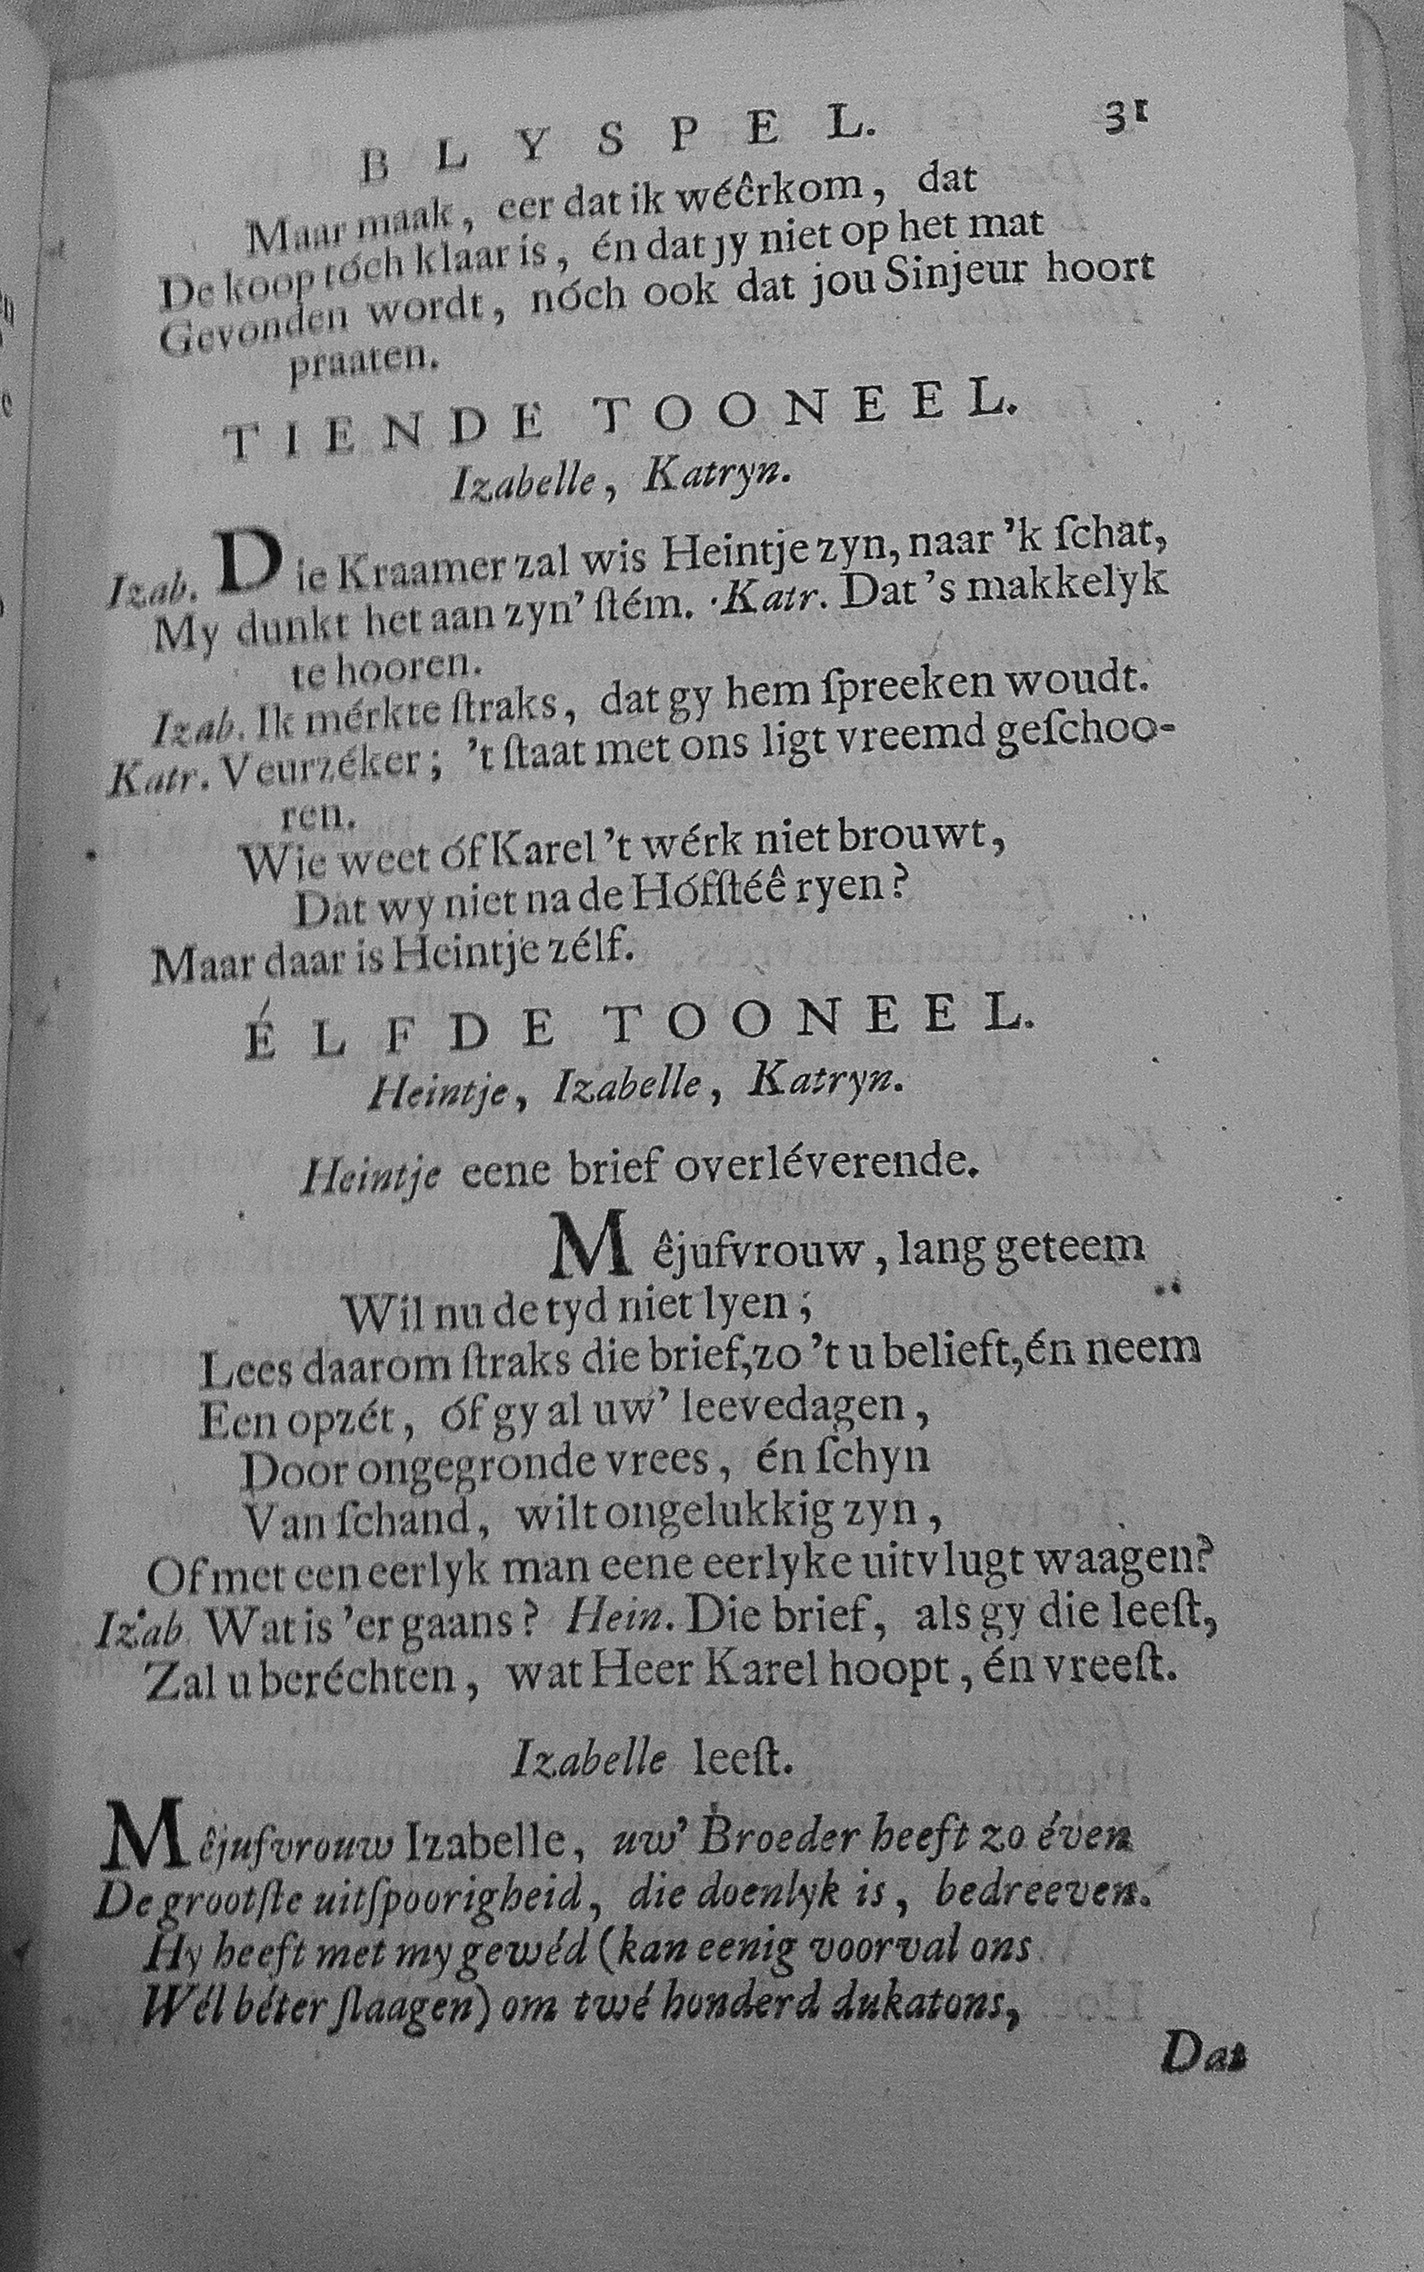 BLYSPEL. 31
Maar maak, eer dat ik wéêrkom, dat
De koop tóch klaar is, én dat jy niet op het mat
Gevonden wordt, nóch ook dat jou Sinjeur hoort
praaten.
TIENDE TOONEEL.
Izabelle, Katryn.
Izab. Die Kraamer zal wis Heintje zyn, naar 'k ſchat,
My dunkt het aan zyn' ſtém. Katr. Dat 's makkelyk
te hooren.
Izab. Ik mérkte ſtraks, dat gy hem ſpreeken woudt.
Katr. Veurzéker; 't ſtaat met ons ligt vreemd geſchoo-
ren.
Wie weet óf Karel 't wérk niet brouwt,
Dat wy niet na de Hófſtéê ryen?
Maar daar is Heintje zélf.
ÉLFDE TOONEEL.
Heintje, Izabelle, Katryn.
Heintje eene brief overléverende.
Mêjufvrouw, lang geteem
Wil nu de tyd niet lyen;
Lees daarom ſtraks die brief, zo 't u belieft, én neem
Een opzét, óf gy al uw' leevedagen,
Door ongegronde vrees, én ſchyn
Van ſchand, wilt ongelukkig zyn,
Of met een eerlyk man eene eerlyke uitvlugt waagen?
Izab. Wat is 'er gaans? Hein. Die brief, als gy die leeſt,
Zal u beréchten, wat Heer Karel hoopt, én vreeſt.
Izabelle leeſt.
Mêjufvrouw Izabelle, uw' Broeder heeft zo éven
De grootſte uitſpoorigheid, die doenlyk is, bedreeven.
Hy heeft met my gewéd (kan eenig voorval ons
Wél béter ſlaagen) om twé honderd dukatons,
Dat